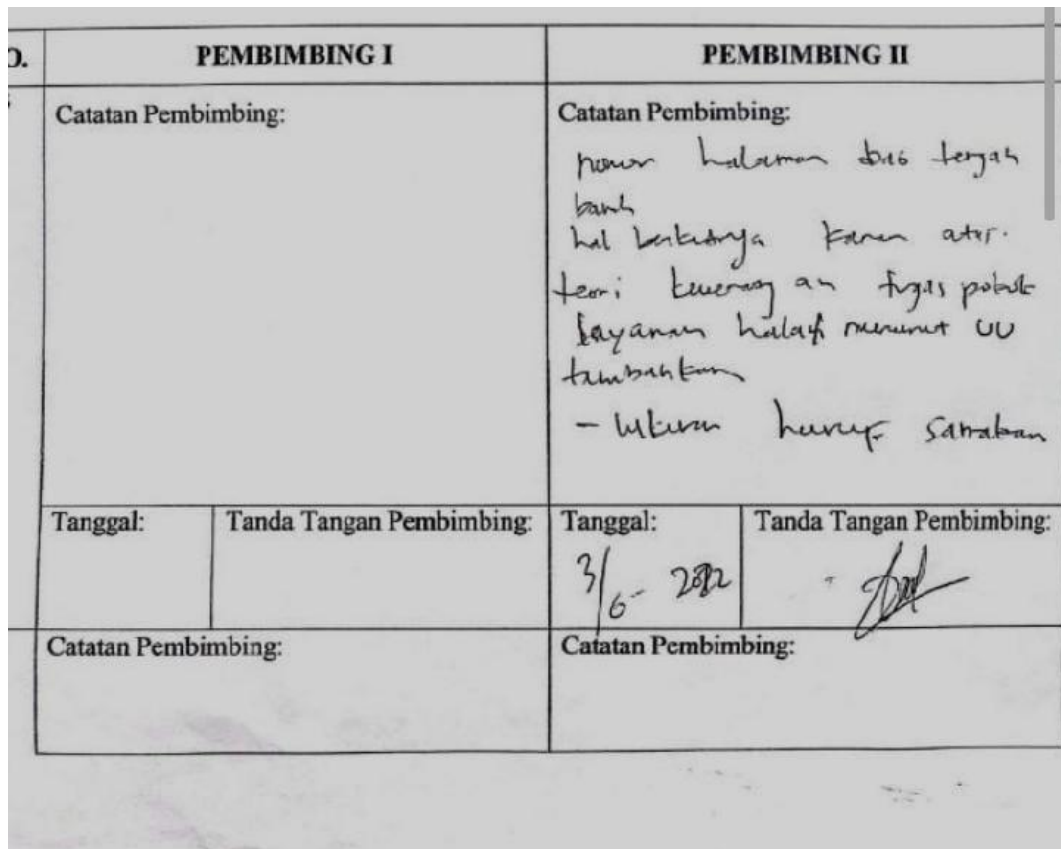 O. PEMBIMBING I PEMBIMBING II
Catatan Pembimbing: Catatan Pembimbing:
nomor halaman bab tengah
bawah
hal berikutnya kanan atas.
teori kewenangan tugas pokok
layanan halal menurut UU
tambahkan
- ukuran huruf samakan
Tanggal: Tanda Tangan Pembimbing: Tanggal: Tanda Tangan Pembimbing:
3/6- 2022
Catatan Pembimbing: Catatan Pembimbing: